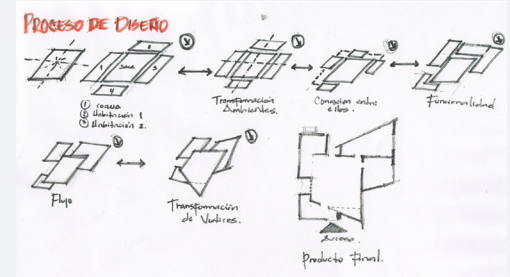 PROCESO DE DISEÑO
1 SALA 3
4
① cocina
② Habitación 1
③ Habitación 2.
Transformación
Ambientes.
Conexion entre
ellos.
Funcionalidad
Flujo
Transformación
de Vertices.
Acceso.
Producto Final.